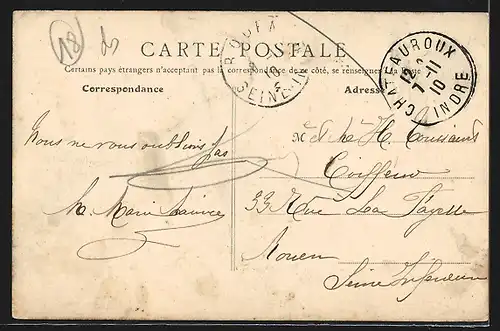 18
CARTE POSTALE
Certains pays étrangers n'acceptant pas la correspondance de ce côté, se renseigner à la Poste
Correspondance
Adresse
ROUEN
SEINE
CHATEAUROUX
12
7-11
10
INDRE
Nous ne vous oublions pas
M. Marie
M
H.
Coiffeur
33 Rue La Fayette
Rouen
Seine Inférieure